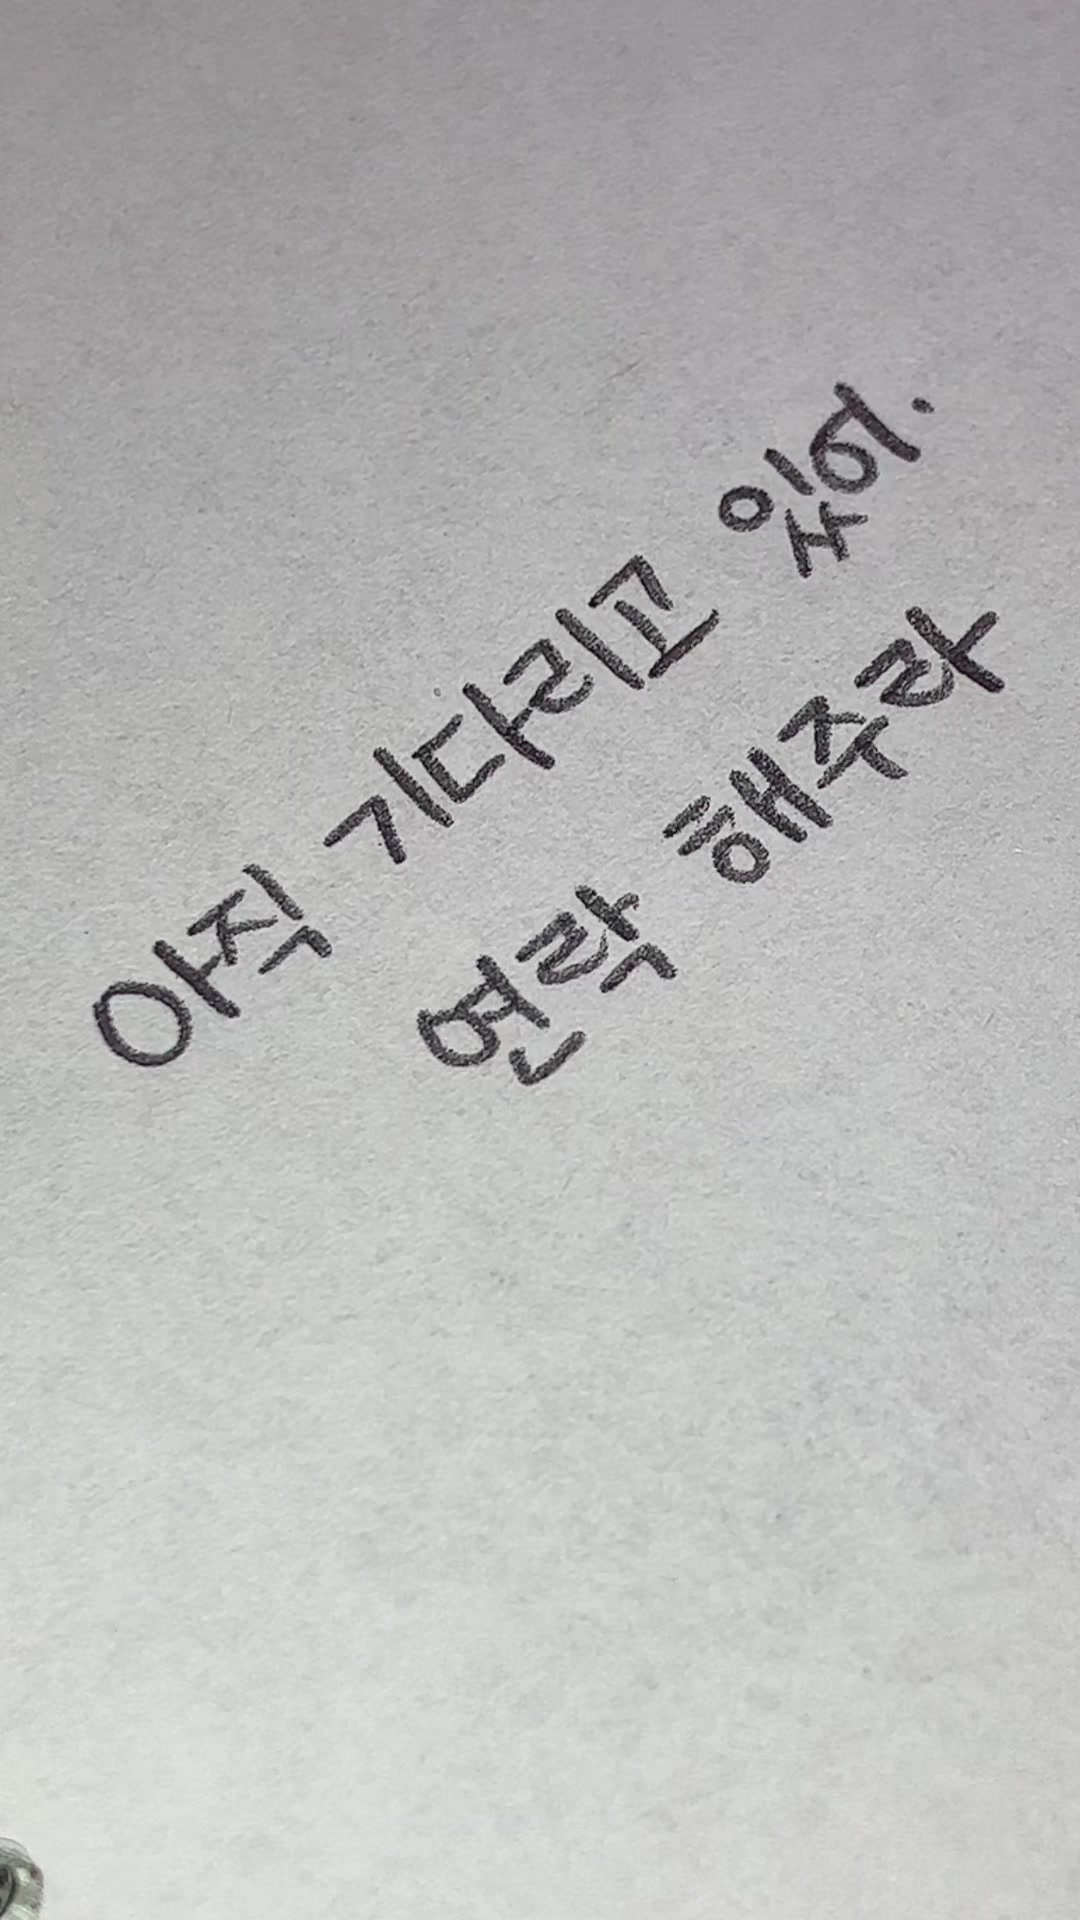 아직 기다리고 있어.
연락 해주라